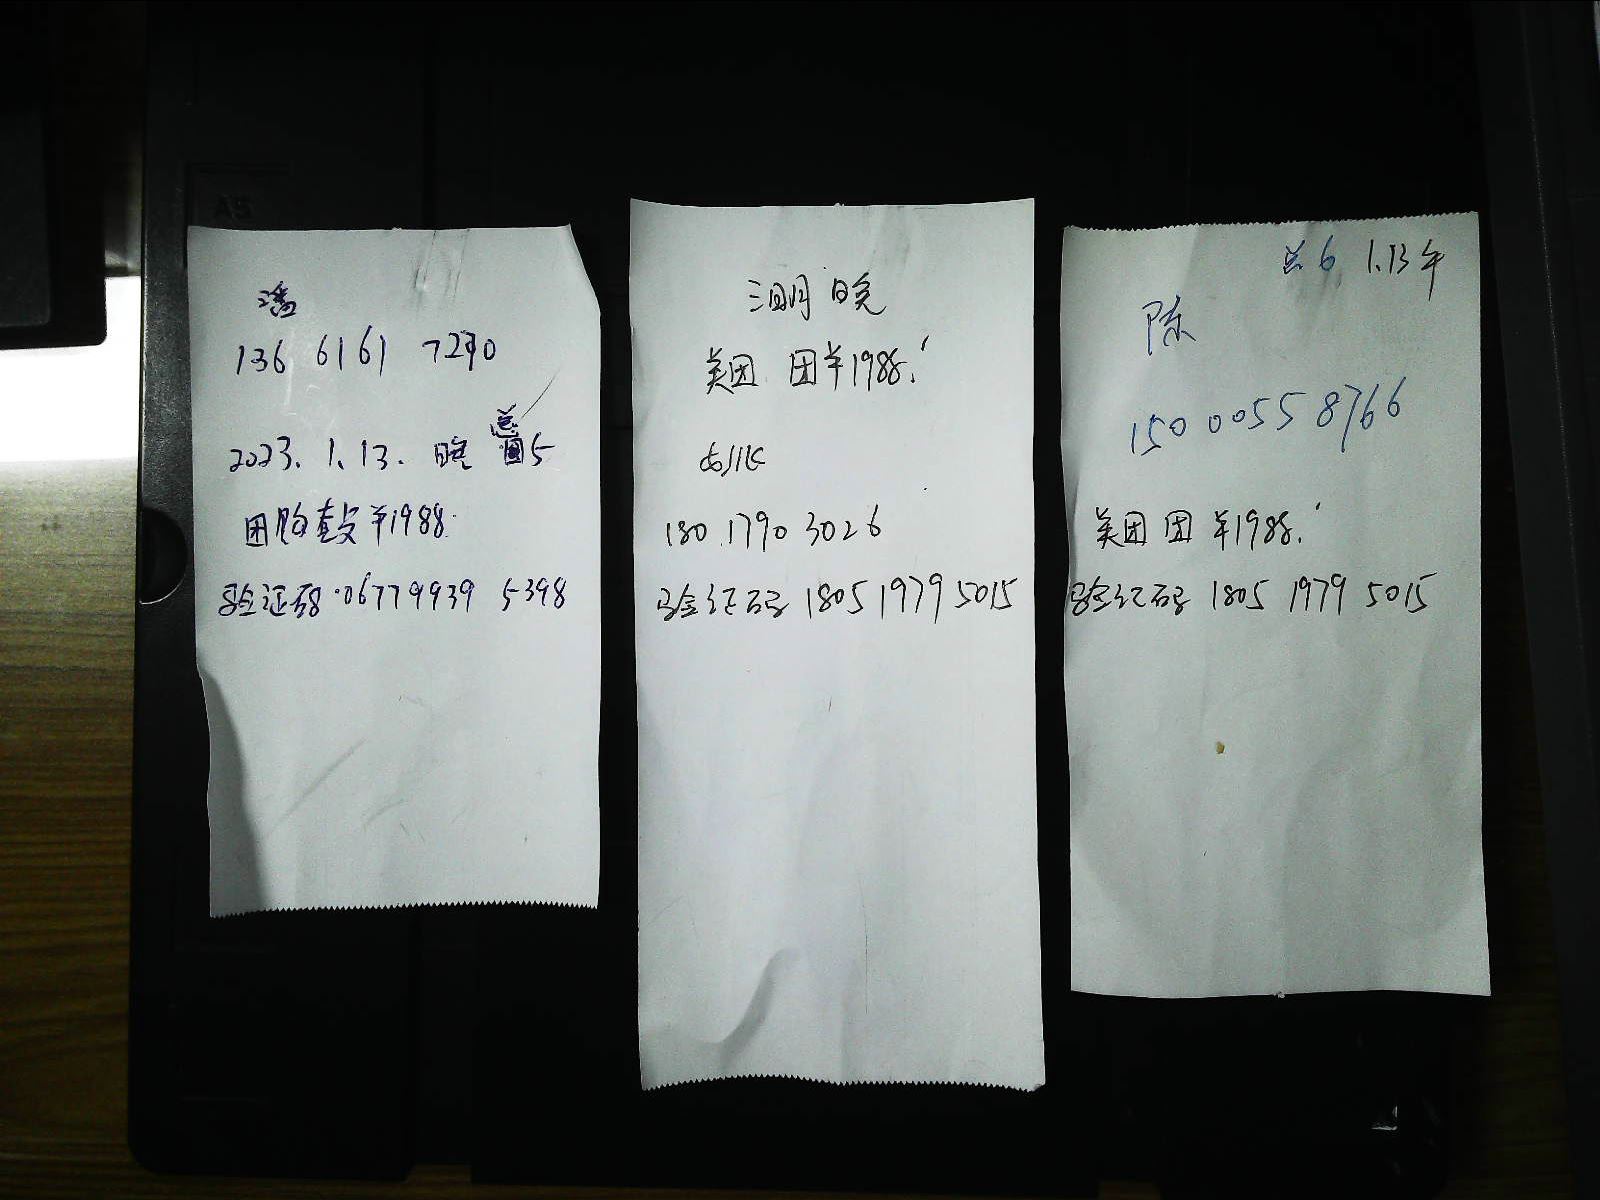 潘
136 6161 7290
2023. 1. 13. 晚 总5
团购套 ¥1988.
验证码 06779939 5398
明 晚
美团 团¥1988.
180 1790 3026
验证码 1805 1979 5015
总6 1.13 午
陈
150 0055 8766
美团 团 ¥1988.
验证码 1805 1979 5015